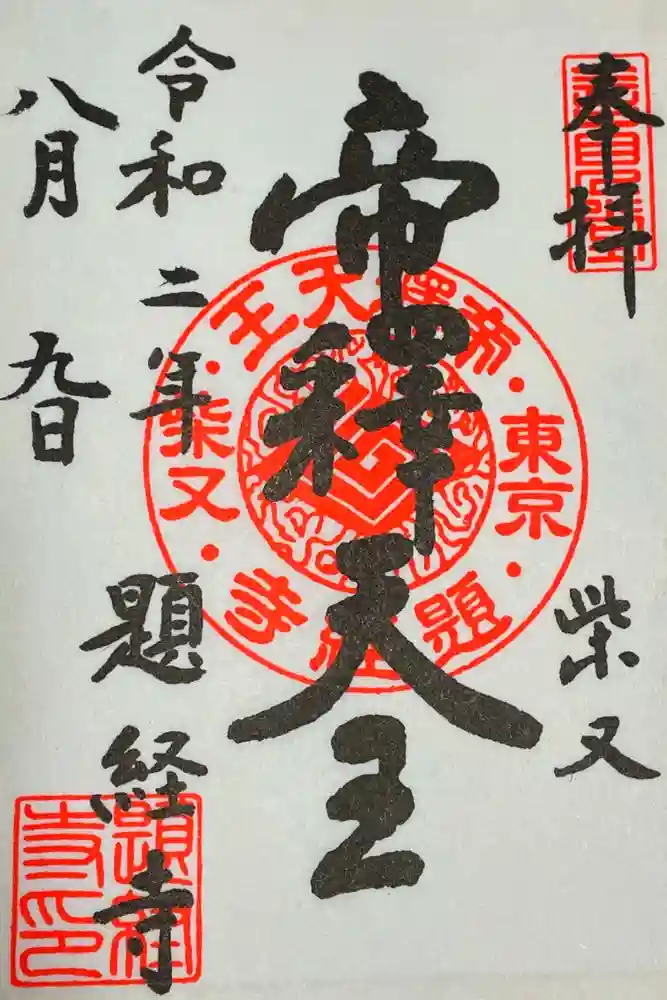 奉拝
柴又
帝釋天王
令和二年
八月九日
題経寺
帝釋天王
東京
柴又
題経寺
題経寺印